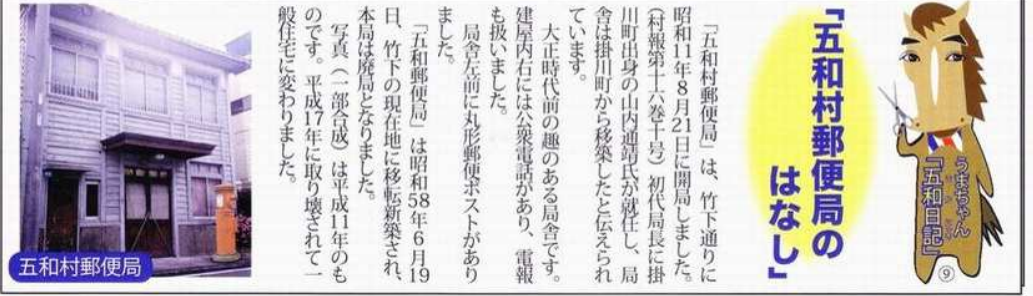 うまちゃん
「五和日記」
⑨
「五和村郵便局の
はなし」
「五和村郵便局」は、竹下通りに
昭和11年8月21日に開局しました。
(村報第十六巻十号)初代局長に掛
川町出身の山内通靖氏が就任し、局
舎は掛川町から移築したと伝えられ
ています。
大正時代前の趣のある局舎です。
建屋内右には公衆電話があり、電報
も扱いました。
局舎左前に丸形郵便ポストがあり
ました。
「五和郵便局」は昭和58年6月19
日、竹下の現在地に移転新築され、
本局は廃局となりました。
写真(一部合成)は平成11年のも
のです。平成17年に取り壊されて一
般住宅に変わりました。
五和村郵便局